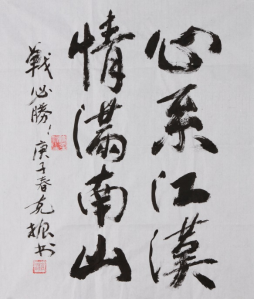 心系江漢
情满南山
戰必勝！庚子春克振书